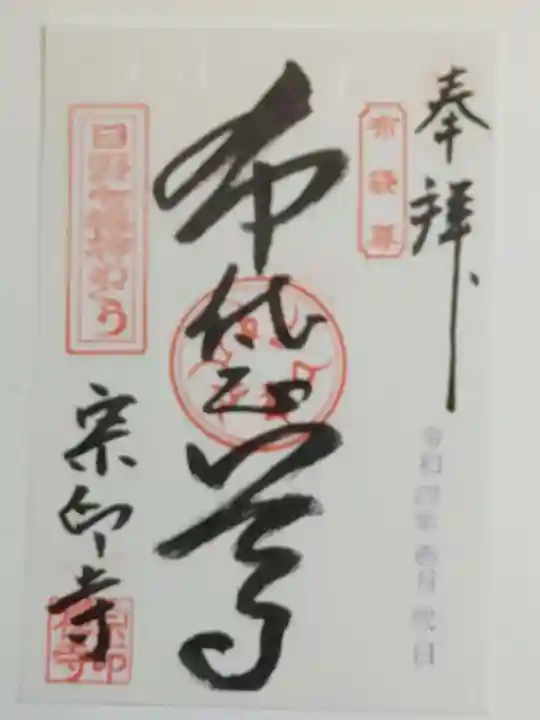 奉拝
布袋尊
令和四年 壱月 弐日
布袋尊
日野七福神めぐり
宗印寺
宗印寺